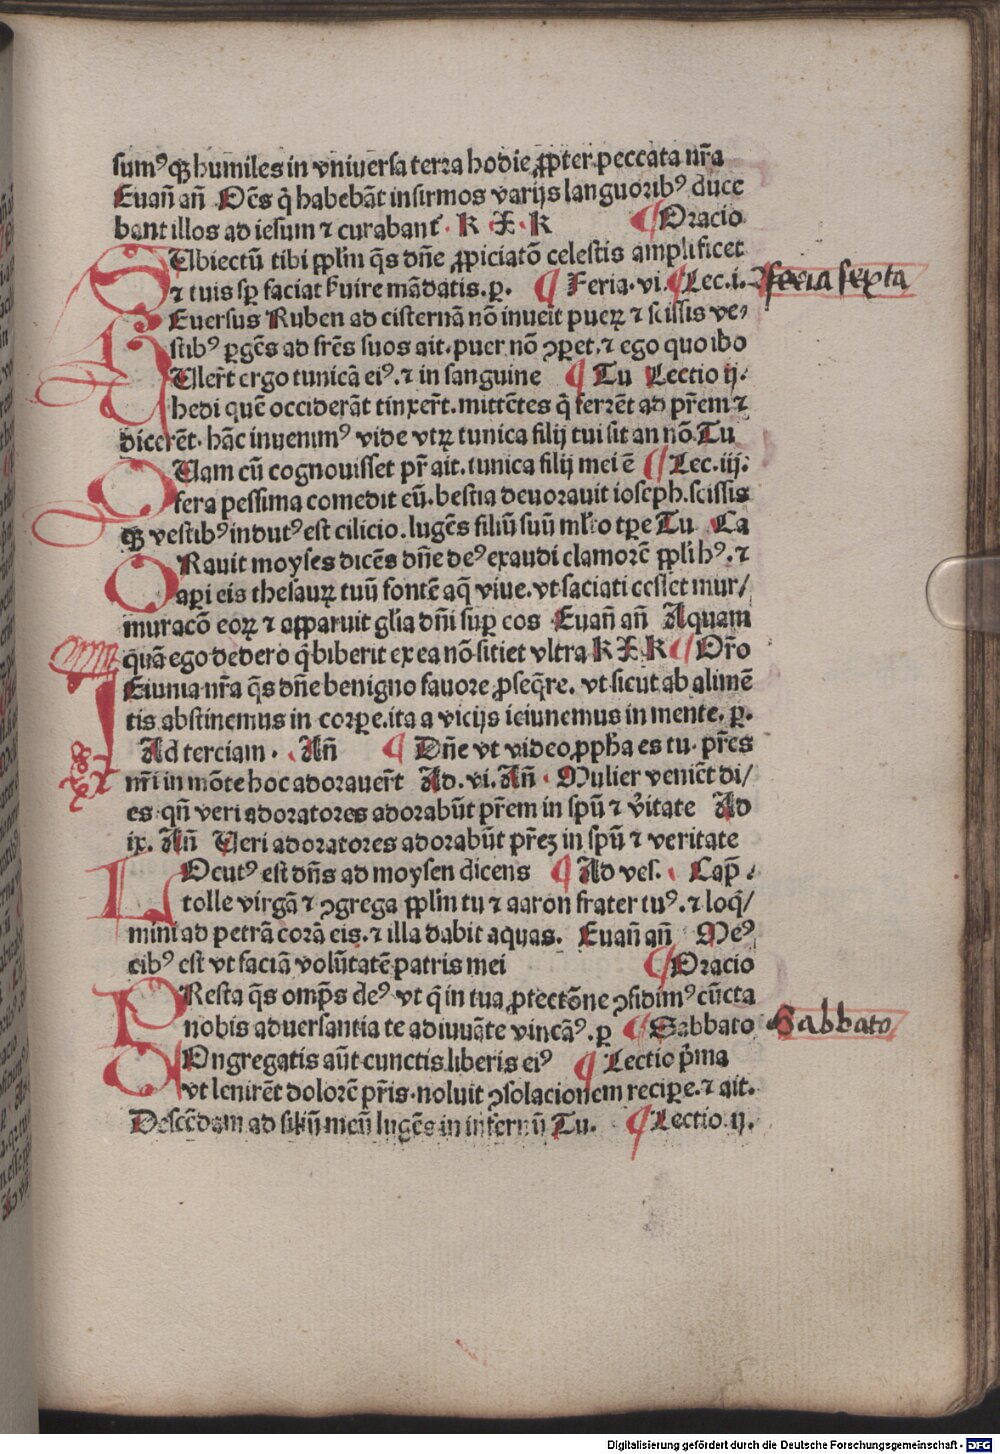 sumꝰ qꝫ humiles in vniuersa terra hodie ꝓpter peccata nr̄a
Euan̄ an̄ Oēs q̄ habebāt infirmos varijs languoribꝰ duce
bant illos ad iesum ⁊ curabant᷑ · k · X · k ¶ Oracio
SUbiectū tibi ppl̄m q̄s dn̄e ꝓpiciatō celestis amplificet
⁊ tuis sꝑ faciat ẜuire mādatis. p. ¶ Feria. vi. ¶ Lec. i.
feria sexta
REuersus Ruben ad cisternā nō inueīt pueꝝ ⁊ scissis ve⸗
stibꝰ ꝑgēs ad fr̄es suos ait. puer nō ꝯꝑet. ⁊ ego quo ibo
TUler̄t ergo tunicā eiꝰ. ⁊ in sanguine ¶ Tu Lectio ij.
hedi quē occiderāt tinxer̄t. mittētes q̄ ferrēt ad pr̄em ⁊
dicerēt. hāc inuenimꝰ vide vtꝝ tunica filij tui sit an nō. Tu
QUam cū cognouisset pr̄ ait. tunica filij mei ē ¶ Lec. iij.
fera pessima comedit eū. bestia deuorauit ioseph. scissis
qꝫ vestibꝰ indutꝰ est cilicio. lugēs filiū suū ml̄to tꝑe Tu Ca
ORauit moyses dicēs dn̄e deꝰ exaudi clamorē ppl̄i hꝰ. ⁊
aꝑi eis thesauꝝ tuū fontē aq̄ viue. vt saciati cesset mur/
muracō eoꝝ ⁊ apparuit gl̄ia dn̄i suꝑ eos Euan̄ an̄ Aquam
quā ego dedero q̄ biberit ex ea nō sitiet vltra k X k ¶ Or̄o
IEiunia nr̄a q̄s dn̄e benigno fauore ꝓseq̄re. vt sicut ab alimē
tis abstinemus in corꝑe. ita a vicijs ieiunemus in mente. p.
Ad terciam. An̄ ¶ Dn̄e vt video ꝓpha es tu. pr̄es
nr̄i in mōte hoc adorauer̄t Ad. vi. An̄. Mulier veniēt di/
es. qn̄ veri adoratores adorabūt pr̄em in spū ⁊ v̄itate Ad
ix. An̄ Veri adoratores adorabūt pr̄eꝫ in spū ⁊ veritate
LOcutꝰ est dn̄s ad moysen dicens ¶ Ad ves. Cap̄.
tolle virgā ⁊ ꝯgrega ppl̄m tu ⁊ aaron frater tuꝰ. ⁊ loq̄/
mini ad petrā corā eis. ⁊ illa dabit aquas. Euan̄ an̄ Meꝰ
cibꝰ est vt faciā volūtatē patris mei ¶ Oracio
PResta q̄s omp̄s deꝰ vt q̄ in tua ꝓtectōne ꝯfidimꝰ cūcta
nobis aduersantia te adiuuāte vincāꝰ. p ¶ Sabbato
Sabbato
COngregatis aūt cunctis liberis eiꝰ ¶ Lectio p̄ma
vt lenirēt dolorē pr̄is. noluit ꝯsolacionem reciꝑe. ⁊ ait.
Descēdam ad filiū meū lugēs in infernū Tu. ¶ Lectio. ij.
Digitalisierung gefördert durch die Deutsche Forschungsgemeinschaft - DFG